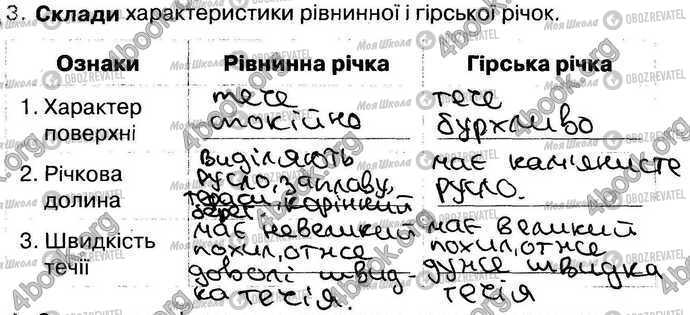 3. Склади характеристики рівнинної і гірської річок.
Ознаки Рівнинна річка Гірська річка
1. Характер поверхні
тече
спокійно
тече
бурхливо
2. Річкова долина
виділяють
русло, заплаву,
тераси, корінний
берег.
має кам'янисте
русло.
3. Швидкість течії
має невеликий
похил, отже
доволі швид-
ка течія.
має великий
похил, отже
дуже швидка
течія